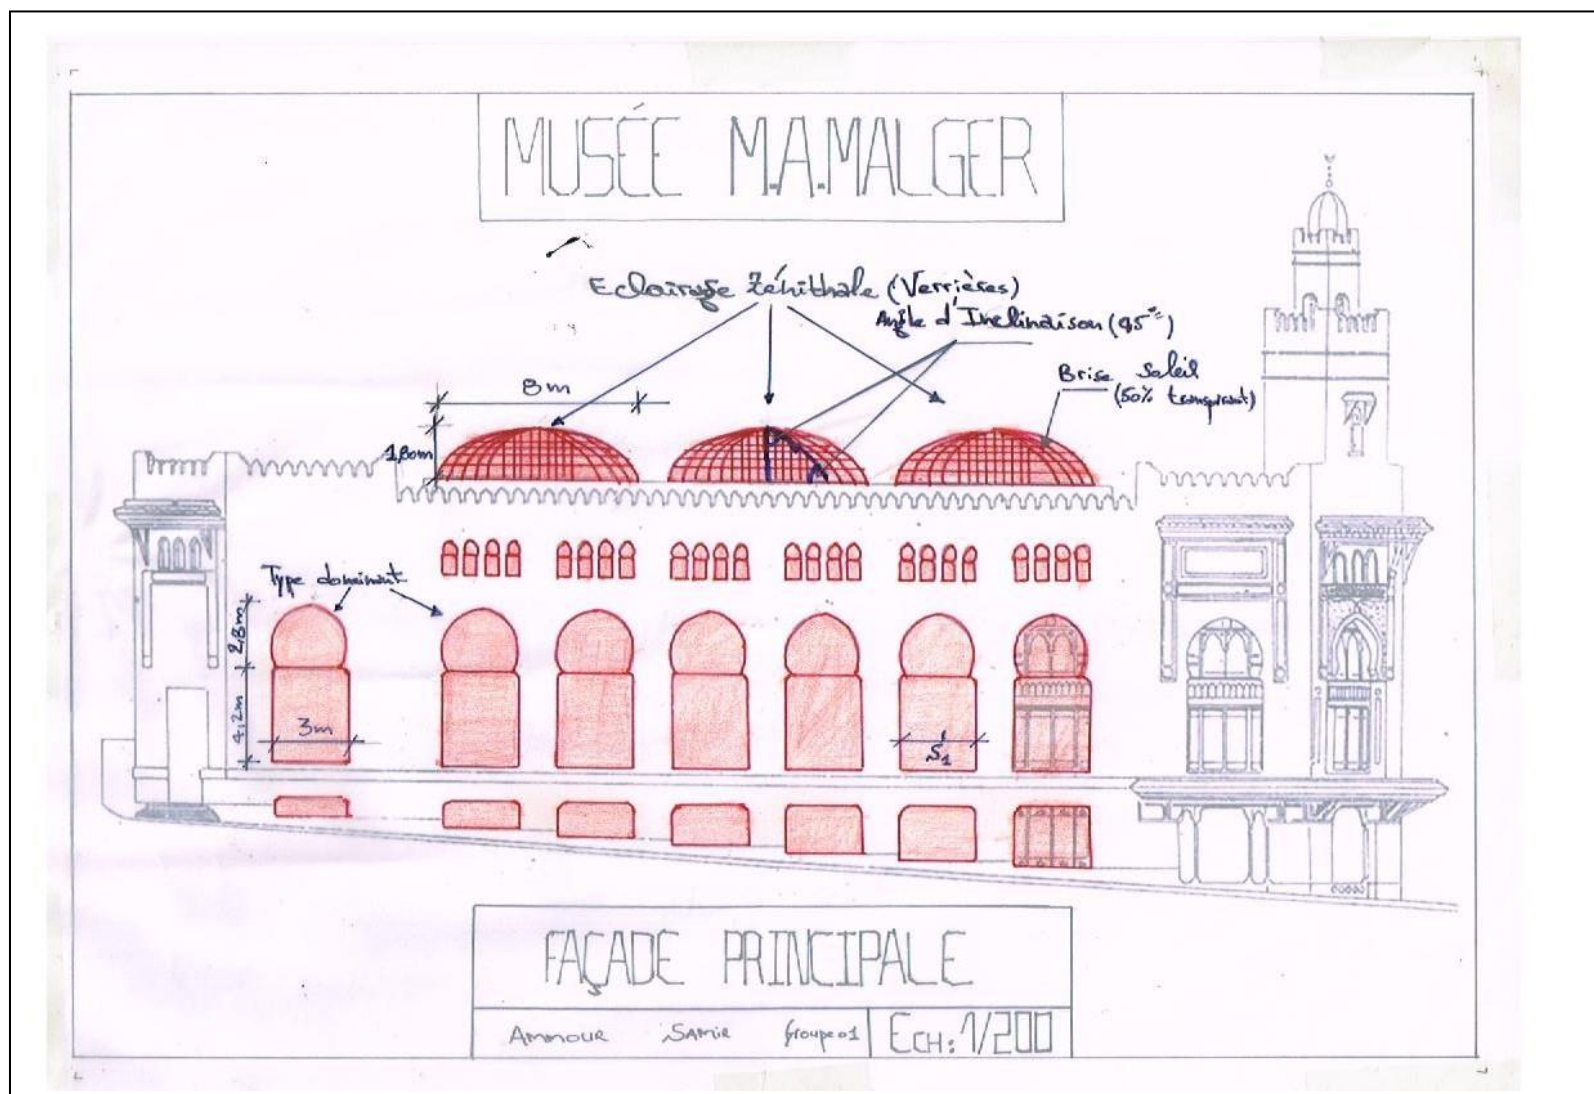 MUSÉE M.A.MALGER
Eclairage Zénithale (Verrières)
Angle d'Inclinaison (45°)
Brise Soleil
(50% transparent)
8m
1,80m
Type dominant
2,8m
4,2m
3m
S1
FAÇADE PRINCIPALE
AMMOUR SAMIR Groupe 01
ECH: 1/200